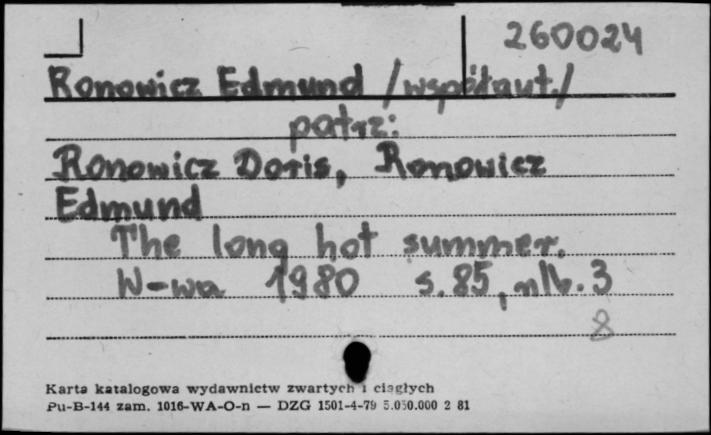 260024
Ronowicz Edmund /współaut./
patrz:
Ronowicz Doris, Ronowicz
Edmund
The long hot summer.
W-wa 1980 s.85, nlb. 3
8
Karta katalogowa wydawnictw zwartych i ciągłych
Pu-B-144 zam. 1016-WA-O-n — DZG 1501-4-79 5.050.000 2 81